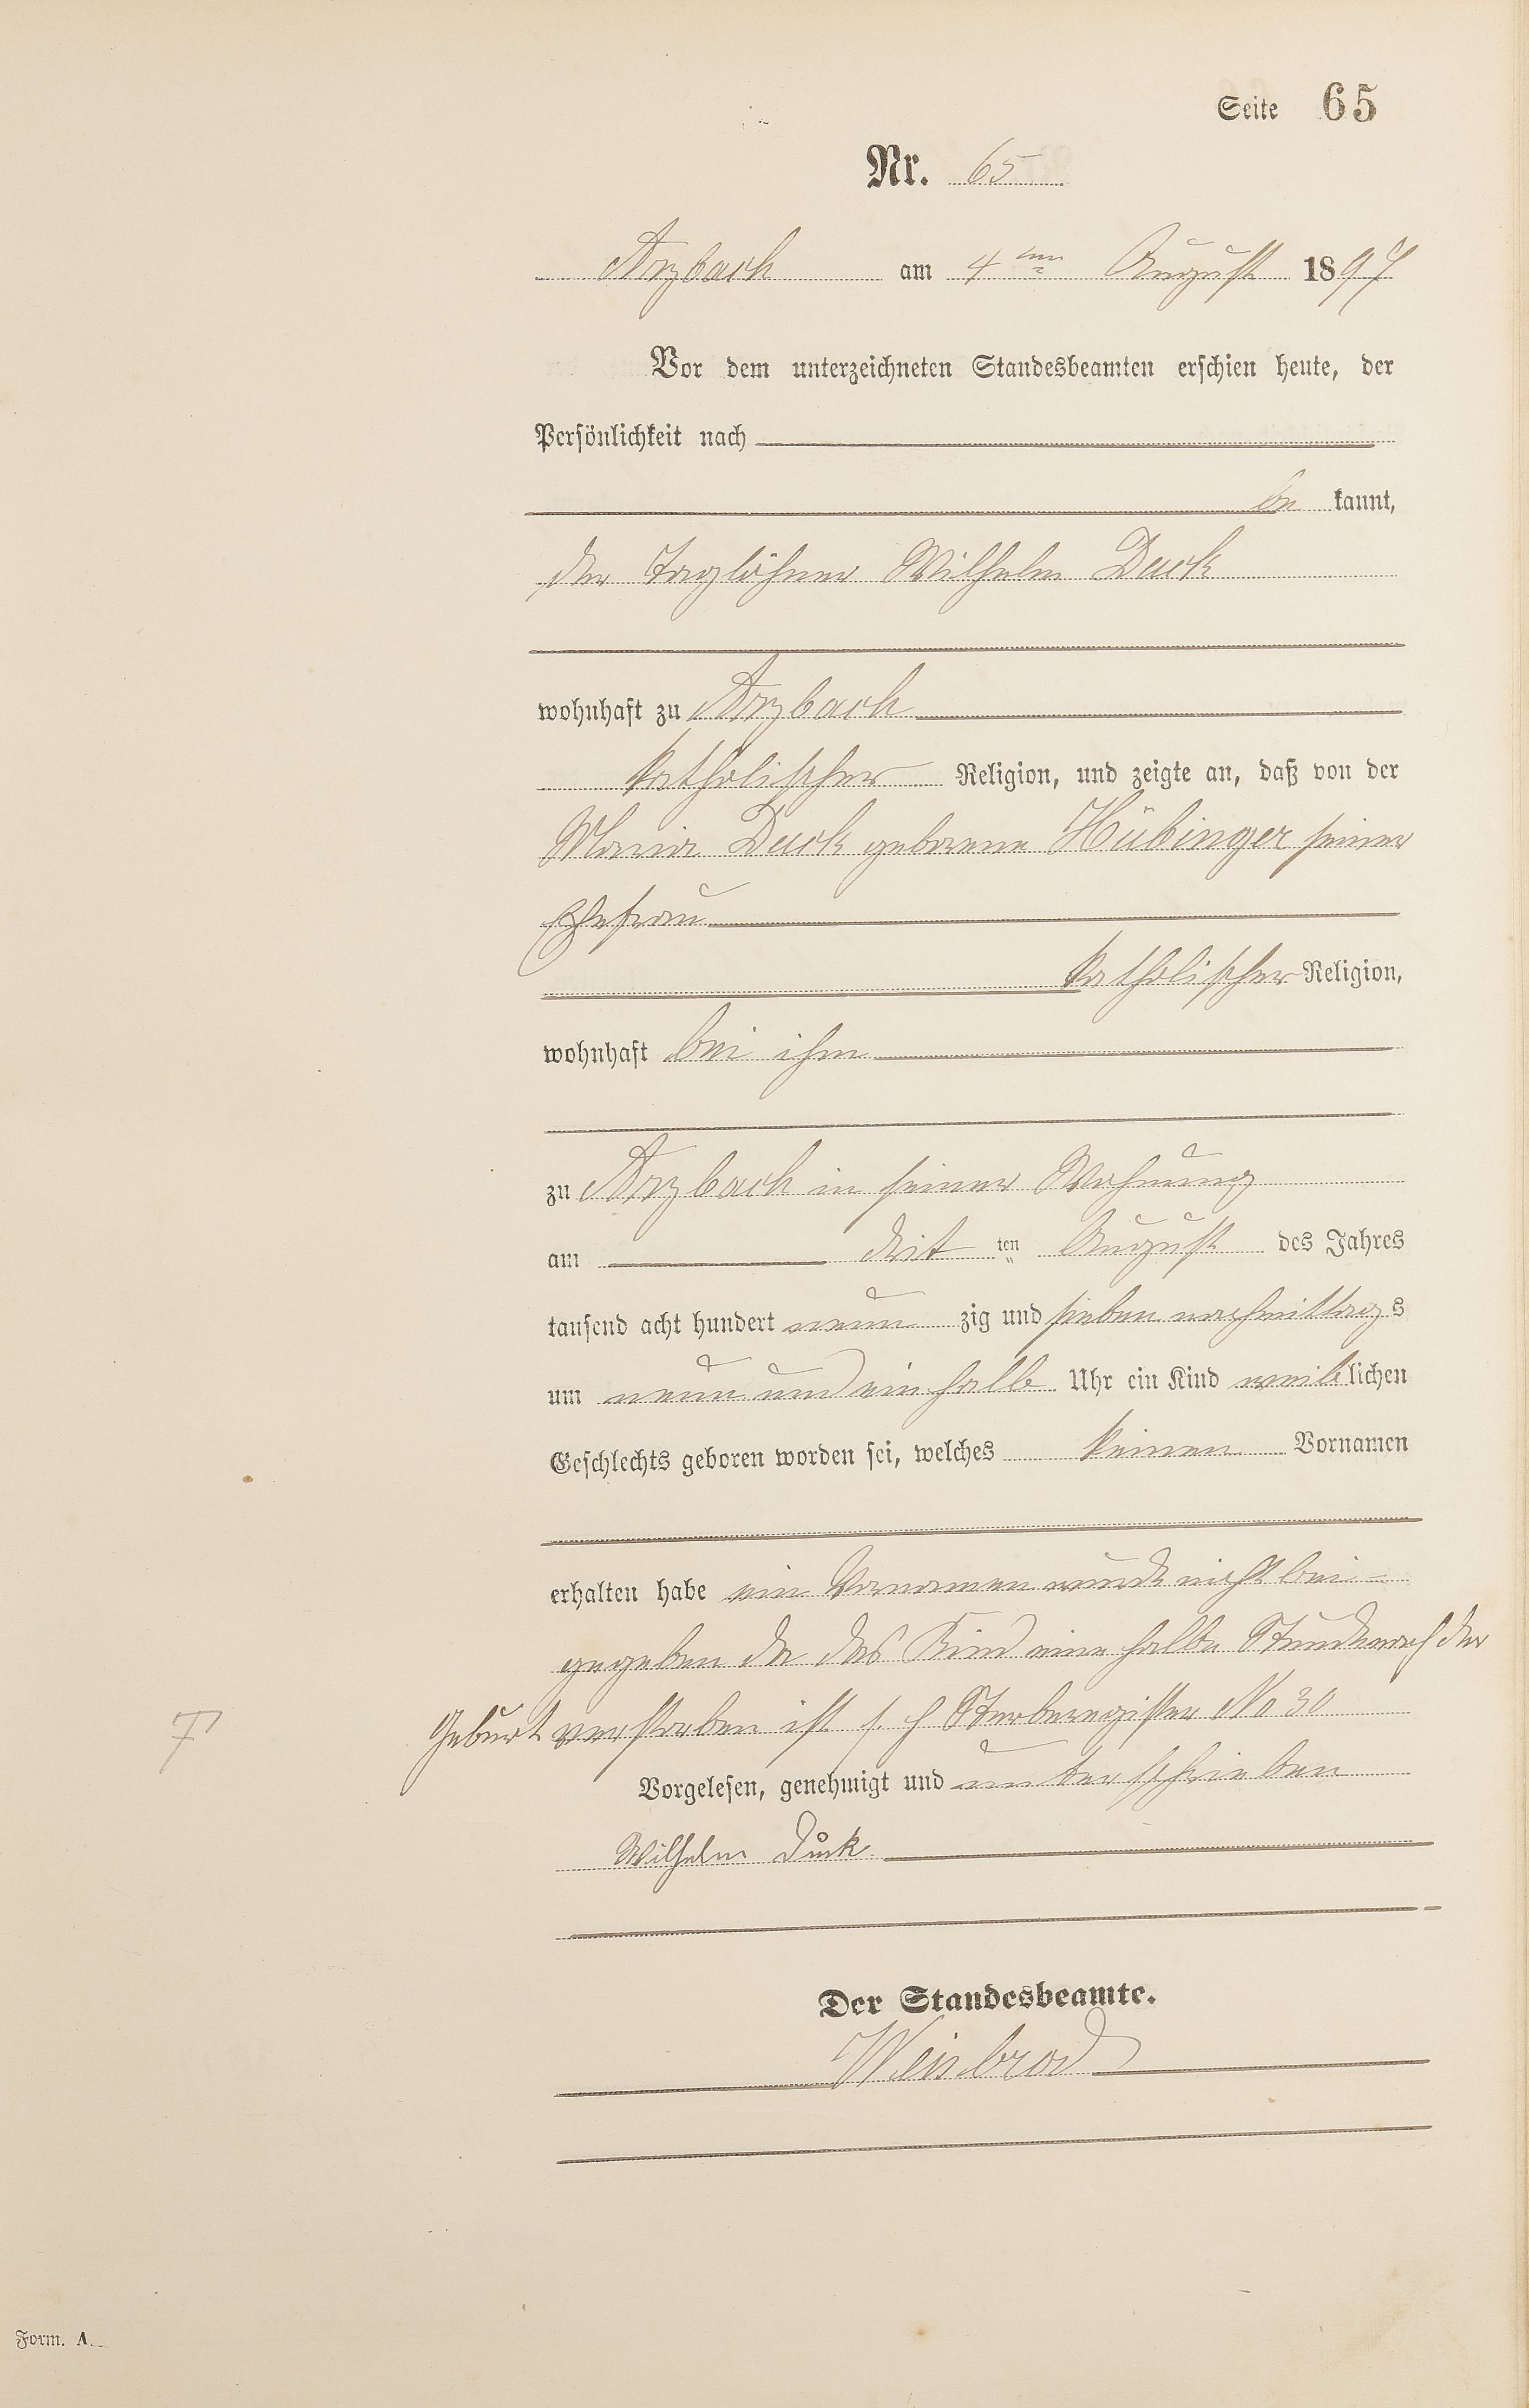 Seite 65
Nr. 65
Arzbach am 4ten August 1897
Vor dem unterzeichneten Standesbeamten erschien heute, der
Persönlichkeit nach
be kannt,
der Taglöhner Wilhelm Duck
wohnhaft zu Arzbach
katholischer Religion, und zeigte an, daß von der
Maria Duck geborene Hübinger seiner
Ehefrau
katholischer Religion,
wohnhaft bei ihm
zu Arzbach in seiner Wohnung
am drit ten August des Jahres
tausend acht hundert neun zig und sieben nachmittags
um neun und ein halb Uhr ein Kind weiblichen
Geschlechts geboren worden sei, welches keinen Vornamen
erhalten habe ein Vornamen wurde nicht bei-
gegeben da das Kind eine halbe Stunde nach der
Geburt verstorben ist s. h Sterberegister No 30
Vorgelesen, genehmigt und unterschrieben
Wilhelm Duck
Der Standesbeamte.
Weisbrod
Form. A.